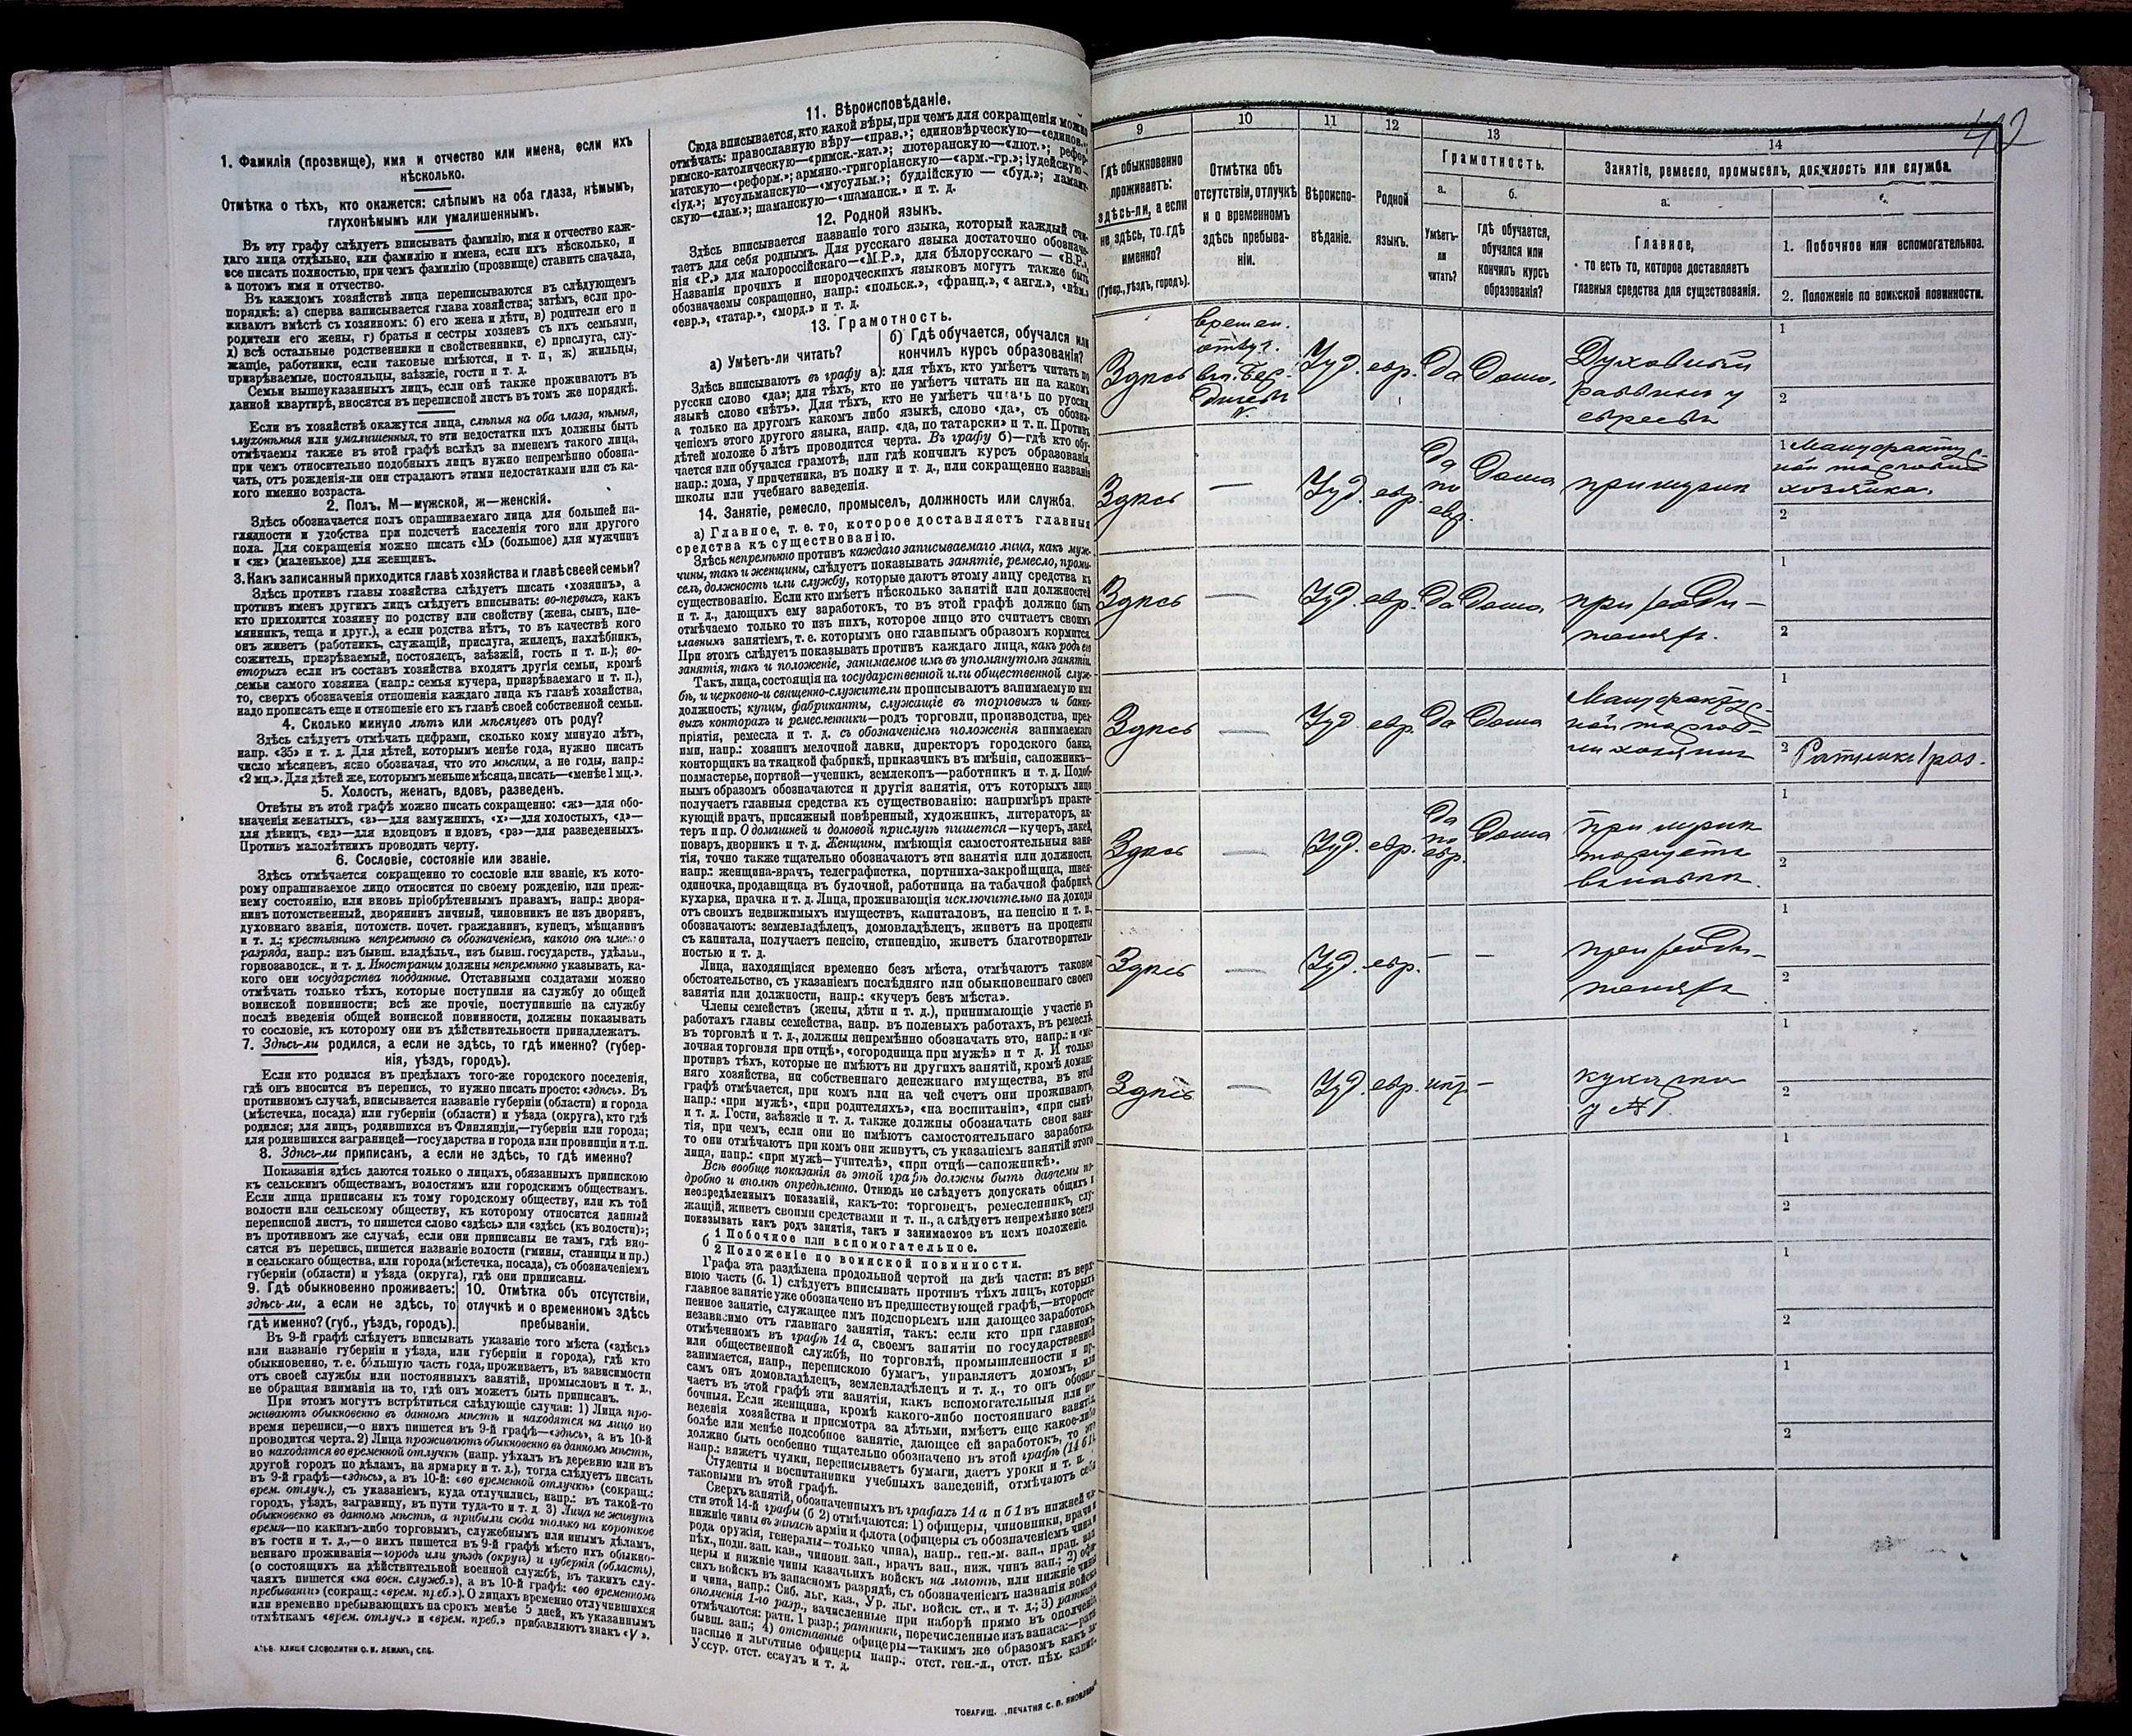 1. Фамилія (прозвище), имя и отчество или имена, если ихъ
нѣсколько.
Отмѣтка о тѣхъ, кто окажется: слѣпымъ на оба глаза, нѣмымъ,
глухонѣмымъ или умалишеннымъ.
Въ эту графу слѣдуетъ вписывать фамилію, имя и отчество каж-
даго лица отдѣльно, или фамилію и имена, если ихъ нѣсколько, и
все писать полностью, при чемъ фамилію (прозвище) ставить сначала,
а потомъ имя и отчество.
Въ каждомъ хозяйствѣ лица переписываются въ слѣдующемъ
порядкѣ: а) сперва записывается глава хозяйства; затѣмъ, если про-
живаютъ вмѣстѣ съ хозяиномъ: б) его жена и дѣти, в) родители его и
родители его жены, г) братья и сестры хозяевъ съ ихъ семьями,
д) всѣ остальные родственники и свойственники, е) прислуга, слу-
жащіе, работники, если таковые имѣются, и т. п., ж) жильцы,
призрѣваемые, постояльцы, заѣзжіе, гости и т. д.
Семьи вышеуказанныхъ лицъ, если онѣ также проживаютъ въ
данной квартирѣ, вносятся въ переписной листъ въ томъ же порядкѣ.
Если въ хозяйствѣ окажутся лица, слѣпыя на оба глаза, нѣмыя,
глухонѣмыя или умалишенныя, то эти недостатки ихъ должны быть
отмѣчаемы также въ этой графѣ вслѣдъ за именемъ такого лица,
при чемъ относительно подобныхъ лицъ нужно непремѣнно обозна-
чать, отъ рожденія-ли они страдаютъ этими недостатками или съ ка-
кого именно возраста.
2. Полъ. М—мужской, ж—женскій.
Здѣсь обозначается полъ опрашиваемаго лица для большей на-
глядности и удобства при подсчетѣ населенія того или другого
пола. Для сокращенія можно писать «М» (большое) для мужчинъ
и «ж» (маленькое) для женщинъ.
3. Какъ записанный приходится главѣ хозяйства и главѣ своей семьи?
Здѣсь противъ главы хозяйства слѣдуетъ писать «хозяинъ», а
противъ именъ другихъ лицъ слѣдуетъ вписывать: во-первыхъ, какъ
кто приходится хозяину по родству или свойству (жена, сынъ, пле-
мянникъ, теща и друг.), а если родства нѣтъ, то въ качествѣ кого
онъ живетъ (работникъ, служащій, прислуга, жилецъ, нахлѣбникъ,
сожитель, призрѣваемый, постоялецъ, заѣзжій, гость и т. п.); во-
вторыхъ если въ составъ хозяйства входятъ другія семьи, кромѣ
семьи самого хозяина (напр.: семья кучера, призрѣваемаго и т. п.),
то, сверхъ обозначенія отношенія каждаго лица къ главѣ хозяйства,
надо прописать еще и отношеніе его къ главѣ своей собственной семьи.
4. Сколько минуло лѣтъ или мѣсяцевъ отъ роду?
Здѣсь слѣдуетъ отмѣчать цифрами, сколько кому минуло лѣтъ,
напр. «35» и т. д. Для дѣтей, которымъ менѣе года, нужно писать
число мѣсяцевъ, ясно обозначая, что это мѣсяцы, а не годы, напр.:
«2 мц.». Для дѣтей же, которымъ меньше мѣсяца, писать—«менѣе 1 мц.».
5. Холостъ, женатъ, вдовъ, разведенъ.
Отвѣты въ этой графѣ можно писать сокращенно: «ж»—для обо-
значенія женатыхъ, «з»—для замужнихъ, «х»—для холостыхъ, «д»—
для дѣвицъ, «вд»—для вдовцовъ и вдовъ, «рз»—для разведенныхъ.
Противъ малолѣтнихъ проводить черту.
6. Сословіе, состояніе или званіе.
Здѣсь отмѣчается сокращенно то сословіе или званіе, къ кото-
рому опрашиваемое лицо относится по своему рожденію, или преж-
нему состоянію, или вновь пріобрѣтеннымъ правамъ, напр.: дворя-
нинъ потомственный, дворянинъ личный, чиновникъ не изъ дворянъ,
духовнаго званія, потомств. почет. гражданинъ, купецъ, мѣщанинъ
и т. д.; крестьянинъ непремѣнно съ обозначеніемъ, какого онъ имено
разряда, напр.: изъ бывш. владѣльч., изъ бывш. государств., удѣльн.,
горнозаводск., и т. д. Иностранцы должны непремѣнно указывать, ка-
кого они государства подданные. Отставными солдатами можно
отмѣчать только тѣхъ, которые поступили на службу до общей
воинской повинности; всѣ же прочіе, поступившіе на службу
послѣ введенія общей воинской повинности, должны показывать
то сословіе, къ которому они въ дѣйствительности принадлежатъ.
7. Здѣсь-ли родился, а если не здѣсь, то гдѣ именно? (губер-
нія, уѣздъ, городъ).
Если кто родился въ предѣлахъ того-же городского поселенія,
гдѣ онъ вносится въ перепись, то нужно писать просто: «здѣсь». Въ
противномъ случаѣ, вписывается названіе губерніи (области) и города
(мѣстечка, посада) или губерніи (области) и уѣзда (округа), кто гдѣ
родился; для лицъ, родившихся въ Финляндіи,—губерніи или города;
для родившихся заграницей—государства и города или провинціи и т.п.
8. Здѣсь-ли приписанъ, а если не здѣсь, то гдѣ именно?
Показанія здѣсь даются только о лицахъ, обязанныхъ припискою
къ сельскимъ обществамъ, волостямъ или городскимъ обществамъ.
Если лица приписаны къ тому городскому обществу, или къ той
волости или сельскому обществу, къ которому относится данный
переписной листъ, то пишется слово «здѣсь» или «здѣсь (къ волости)»;
въ противномъ же случаѣ, если они приписаны не тамъ, гдѣ вно-
сятся въ перепись, пишется названіе волости (гмины, станицы и пр.)
и сельскаго общества, или города (мѣстечка, посада), съ обозначеніемъ
губерніи (области) и уѣзда (округа), гдѣ они приписаны.
9. Гдѣ обыкновенно проживаетъ:
здѣсь-ли, а если не здѣсь, то
гдѣ именно? (губ., уѣздъ, городъ).
10. Отмѣтка объ отсутствіи,
отлучкѣ и о временномъ здѣсь
пребываніи.
Въ 9-й графѣ слѣдуетъ вписывать указаніе того мѣста («здѣсь»
или названіе губерніи и уѣзда, или губерніи и города), гдѣ кто
обыкновенно, т. е. бо́льшую часть года, проживаетъ, въ зависимости
отъ своей службы или постоянныхъ занятій, промысловъ и т. д.,
не обращая вниманія на то, гдѣ онъ можетъ быть приписанъ.
При этомъ могутъ встрѣтиться слѣдующіе случаи: 1) Лица про-
живаютъ обыкновенно въ данномъ мѣстѣ и находятся на лицо во
время переписи,—о нихъ пишется въ 9-й графѣ—«здѣсь», а въ 10-й
проводится черта. 2) Лица проживаютъ обыкновенно въ данномъ мѣстѣ,
но находятся во временной отлучкѣ (напр. уѣхалъ въ деревню или въ
другой городъ по дѣламъ, на ярмарку и т. д.), тогда слѣдуетъ писать
въ 9-й графѣ—«здѣсь», а въ 10-й: «во временной отлучкѣ» (сокращ.:
врем. отлуч.), съ указаніемъ, куда отлучились, напр.: въ такой-то
городъ, уѣздъ, заграницу, въ пути туда-то и т. д. 3) Лица не живутъ
обыкновенно въ данномъ мѣстѣ, а прибыли сюда только на короткое
время—по какимъ-либо торговымъ, служебнымъ или инымъ дѣламъ,
въ гости и т. д.,—о нихъ пишется въ 9-й графѣ мѣсто ихъ обыкно-
веннаго проживанія—городъ или уѣздъ (округъ) и губернія (область),
(о состоящихъ на дѣйствительной военной службѣ, въ такихъ слу-
чаяхъ пишется «на воен. служб.»), а въ 10-й графѣ: «во временномъ
пребываніи» (сокращ.: «врем. преб.»). О лицахъ временно отлучившихся
или временно пребывающихъ на срокъ менѣе 5 дней, къ указаннымъ
отмѣткамъ «врем. отлуч.» и «врем. преб.» прибавляютъ знакъ «V».
11. Вѣроисповѣданіе.
Сюда вписывается, кто какой вѣры, при чемъ для сокращенія можно
отмѣчать: православную вѣру—«прав.»; единовѣрческую—«единов.»;
римско-католическую—«римск.-кат.»; лютеранскую—«лют.»; рефор-
матскую—«реформ.»; армяно.-григоріанскую—«арм.-гр.»; іудейскую—
«іуд.»; мусульманскую—«мусульм.»; буддійскую — «буд.»; ламаит-
скую—«лам.»; шаманскую—«шаманск.» и т. д.
12. Родной языкъ.
Здѣсь вписывается названіе того языка, который каждый счи-
таетъ для себя роднымъ. Для русскаго языка достаточно обозначе-
нія «Р.» для малороссійскаго—«М.Р.», для бѣлорусскаго — «Б.Р.».
Названія прочихъ и инородческихъ языковъ могутъ также быть
обозначаемы сокращенно, напр.: «польск.», «франц.», «англ.», «нѣм.»
«евр.», «татар.», «морд.» и т. д.
13. Грамотность.
а) Умѣетъ-ли читать?
б) Гдѣ обучается, обучался или
кончилъ курсъ образованія?
Здѣсь вписываютъ въ графу а): для тѣхъ, кто умѣетъ читать по
русски слово «да»; для тѣхъ, кто не умѣетъ читать ни на какомъ
языкѣ слово «нѣтъ». Для тѣхъ, кто не умѣетъ читать по русски,
а только на другомъ какомъ либо языкѣ, слово «да», съ обозна-
ченіемъ этого другого языка, напр. «да, по татарски» и т. п. Противъ
дѣтей моложе 5 лѣтъ проводится черта. Въ графу б)—гдѣ кто обу-
чается или обучался грамотѣ, или гдѣ кончилъ курсъ образованія,
напр.: дома, у причетника, въ полку и т. д., или сокращенно названіе
школы или учебнаго заведенія.
14. Занятіе, ремесло, промыселъ, должность или служба.
а) Главное, т. е. то, которое доставляетъ главныя
средства къ существованію.
Здѣсь непремѣнно противъ каждаго записываемаго лица, какъ муж-
чины, такъ и женщины, слѣдуетъ показывать занятіе, ремесло, промы-
селъ, должность или службу, которые даютъ этому лицу средства къ
существованію. Если кто имѣетъ нѣсколько занятій или должностей
и т. д., дающихъ ему заработокъ, то въ этой графѣ должно быть
отмѣчаемо только то изъ нихъ, которое лицо это считаетъ своимъ
главнымъ занятіемъ, т. е. которымъ оно главнымъ образомъ кормится.
При этомъ слѣдуетъ показывать противъ каждаго лица, какъ родъ его
занятія, такъ и положеніе, занимаемое имъ въ упомянутомъ занятіи.
Такъ, лица, состоящія на государственной или общественной служ-
бѣ, и церковно-и священно-служители прописываютъ занимаемую ими
должность; купцы, фабриканты, служащіе въ торговыхъ и банко-
выхъ конторахъ и ремесленники—родъ торговли, производства, пред-
пріятія, ремесла и т. д. съ обозначеніемъ положенія занимаемаго
ими, напр.: хозяинъ мелочной лавки, директоръ городского банка,
конторщикъ на ткацкой фабрикѣ, приказчикъ въ имѣніи, сапожникъ—
подмастерье, портной—ученикъ, землекопъ—работникъ и т. д. Подоб-
нымъ образомъ обозначаются и другія занятія, отъ которыхъ лицо
получаетъ главныя средства къ существованію: напримѣръ практи-
кующій врачъ, присяжный повѣренный, художникъ, литераторъ, ак-
теръ и пр. О домашней и домовой прислугѣ пишется—кучеръ, лакей,
поваръ, дворникъ и т. д. Женщины, имѣющія самостоятельныя заня-
тія, точно также тщательно обозначаютъ эти занятія или должности,
напр.: женщина-врачъ, телеграфистка, портниха-закройщица, швея-
одиночка, продавщица въ булочной, работница на табачной фабрикѣ,
кухарка, прачка и т. д. Лица, проживающія исключительно на доходы
отъ своихъ недвижимыхъ имуществъ, капиталовъ, на пенсію и т. п.,
обозначаютъ: землевладѣлецъ, домовладѣлецъ, живетъ на проценты
съ капитала, получаетъ пенсію, стипендію, живетъ благотворитель-
ностью и т. д.
Лица, находящіяся временно безъ мѣста, отмѣчаютъ таковое
обстоятельство, съ указаніемъ послѣдняго или обыкновеннаго своего
занятія или должности, напр.: «кучеръ безъ мѣста».
Члены семействъ (жены, дѣти и т. д.), принимающіе участіе въ
работахъ главы семейства, напр. въ полевыхъ работахъ, въ ремеслѣ,
въ торговлѣ и т. д., должны непремѣнно обозначать это, напр.: и «ме-
лочная торговля при отцѣ», «огородница при мужѣ» и т д. И только
противъ тѣхъ, которые не имѣютъ ни другихъ занятій, кромѣ домаш-
няго хозяйства, ни собственнаго денежнаго имущества, въ этой
графѣ отмѣчается, при комъ или на чей счетъ они проживаютъ,
напр.: «при мужѣ», «при родителяхъ», «на воспитаніи», «при сынѣ»
и т. д. Гости, заѣзжіе и т. д. также должны обозначать свои заня-
тія, при чемъ, если они не имѣютъ самостоятельнаго заработка,
то они отмѣчаютъ при комъ они живутъ, съ указаніемъ занятій этого
лица, напр.: «при мужѣ—учителѣ», «при отцѣ—сапожникѣ».
Всѣ вообще показанія въ этой графѣ должны быть даваемы по-
дробно и вполнѣ опредѣленно. Отнюдь не слѣдуетъ допускать общихъ и
неопредѣленныхъ показаній, какъ-то: торговецъ, ремесленникъ, слу-
жащій, живетъ своими средствами и т. п., а слѣдуетъ непремѣнно всегда
показывать какъ родъ занятія, такъ и занимаемое въ немъ положеніе.
б 1 Побочное или вспомогательное.
2 Положеніе по воинской повинности.
Графа эта раздѣлена продольной чертой на двѣ части: въ верх-
нюю часть (б. 1) слѣдуетъ вписывать противъ тѣхъ лицъ, которыхъ
главное занятіе уже обозначено въ предшествующей графѣ,—второсте-
пенное занятіе, служащее имъ подспорьемъ или дающее заработокъ,
независимо отъ главнаго занятія, такъ: если кто при главномъ,
отмѣченномъ въ графѣ 14 а, своемъ занятіи по государственной
или общественной службѣ, по торговлѣ, промышленности и пр.
занимается, напр., перепискою бумагъ, управляетъ домомъ, или
самъ онъ домовладѣлецъ, землевладѣлецъ и т. д., то онъ обозна-
чаетъ въ этой графѣ эти занятія, какъ вспомогательныя или по-
бочныя. Если женщина, кромѣ какого-либо постояннаго занятія,
веденія хозяйства и присмотра за дѣтьми, имѣетъ еще какое-либо
болѣе или менѣе подсобное занятіе, дающее ей заработокъ, то это
должно быть особенно тщательно обозначено въ этой графѣ (14 б 1),
напр.: вяжетъ чулки, переписываетъ бумаги, даетъ уроки и т. п.
Студенты и воспитанники учебныхъ заведеній, отмѣчаютъ себя
таковыми въ этой графѣ.
Сверхъ занятій, обозначенныхъ въ графахъ 14 а и б 1 въ нижней ча-
сти этой 14-й графы (б 2) отмѣчаются: 1) офицеры, чиновники, врачи и
нижніе чины въ запасѣ арміи и флота (офицеры съ обозначеніемъ чина и
рода оружія, генералы—только чина), напр.. ген.-м. зап., прап. зап.
пѣх., подп. зап. кав., чиновн. зап., врачъ зап., ниж. чинъ зап.; 2) офи-
церы и нижніе чины казачьихъ войскъ на льготѣ, или нижніе чины
сихъ войскъ въ запасномъ разрядѣ, съ обозначеніемъ названія войска
и чина, напр.: Сиб. льг. каз., Ур. льг. войск. ст., и т. д.; 3) ратники
ополченія 1-го разр., зачисленные при наборѣ прямо въ ополченіе,
отмѣчаются: ратн. 1 разр.; ратники, перечисленные изъ запаса:—ратн.
бывш. зап.; 4) отставные офицеры—такимъ же образомъ какъ за-
пасные и льготные офицеры напр.: отст. ген.-л., отст. пѣх. капит.
Уссур. отст. есаулъ и т. д.
АЛЬБ. КЛИШЕ СЛОВОЛИТНИ О. И. ЛЕМАНЪ, СПБ.
ТОВАРИЩ. „ПЕЧАТНЯ С. П. ЯКОВЛЕВА
42
9 10 11 12 13 14
Гдѣ обыкновенно
проживаетъ:
здѣсь-ли, а если
не здѣсь, то гдѣ
именно?
(Губер., уѣздъ, городъ).
Отмѣтка объ
отсутствіи, отлучкѣ
и о временномъ
здѣсь пребыва-
ніи.
Вѣроиспо-
вѣданіе.
Родной
языкъ.
Грамотность.
а.
Умѣетъ-
ли
читать?
б.
гдѣ обучается,
обучался или
кончилъ курсъ
образованія?
Занятіе, ремесло, промыселъ, должность или служба.
а.
Главное,
то есть то, которое доставляетъ
главныя средства для существованія.
1. Побочное или вспомогательноа.
2. Положеніе по воинской повинности.
Здѣсь
времен.
отлуч.
V.
Іуд.
евр.
да
дома.
Духовный
раввинъ у
евреевъ
1
2
Здѣсь
—
Іуд.
евр.
да
по
евр.
дома
при мужѣ
1 Мануфактур-
ной торговли
хозяйка.
2
Здѣсь
—
Іуд.
евр.
да
дома
при роди-
теляхъ.
1
2
Здѣсь
—
Іуд.
евр.
да
дома
Мануфактур-
ной торгов-
ли хозяинъ
1
2 Ратникъ 1 раз.
Здѣсь
—
Іуд.
евр.
да
по
евр.
дома
при мужѣ
торгуетъ
въ лавкѣ.
1
2
Здѣсь
—
Іуд.
евр.
—
—
при роди-
теляхъ.
1
2
Здѣсь
—
Іуд.
евр.
нѣт
—
кухарка
у №1
1
2
1
2
1
2
1
2